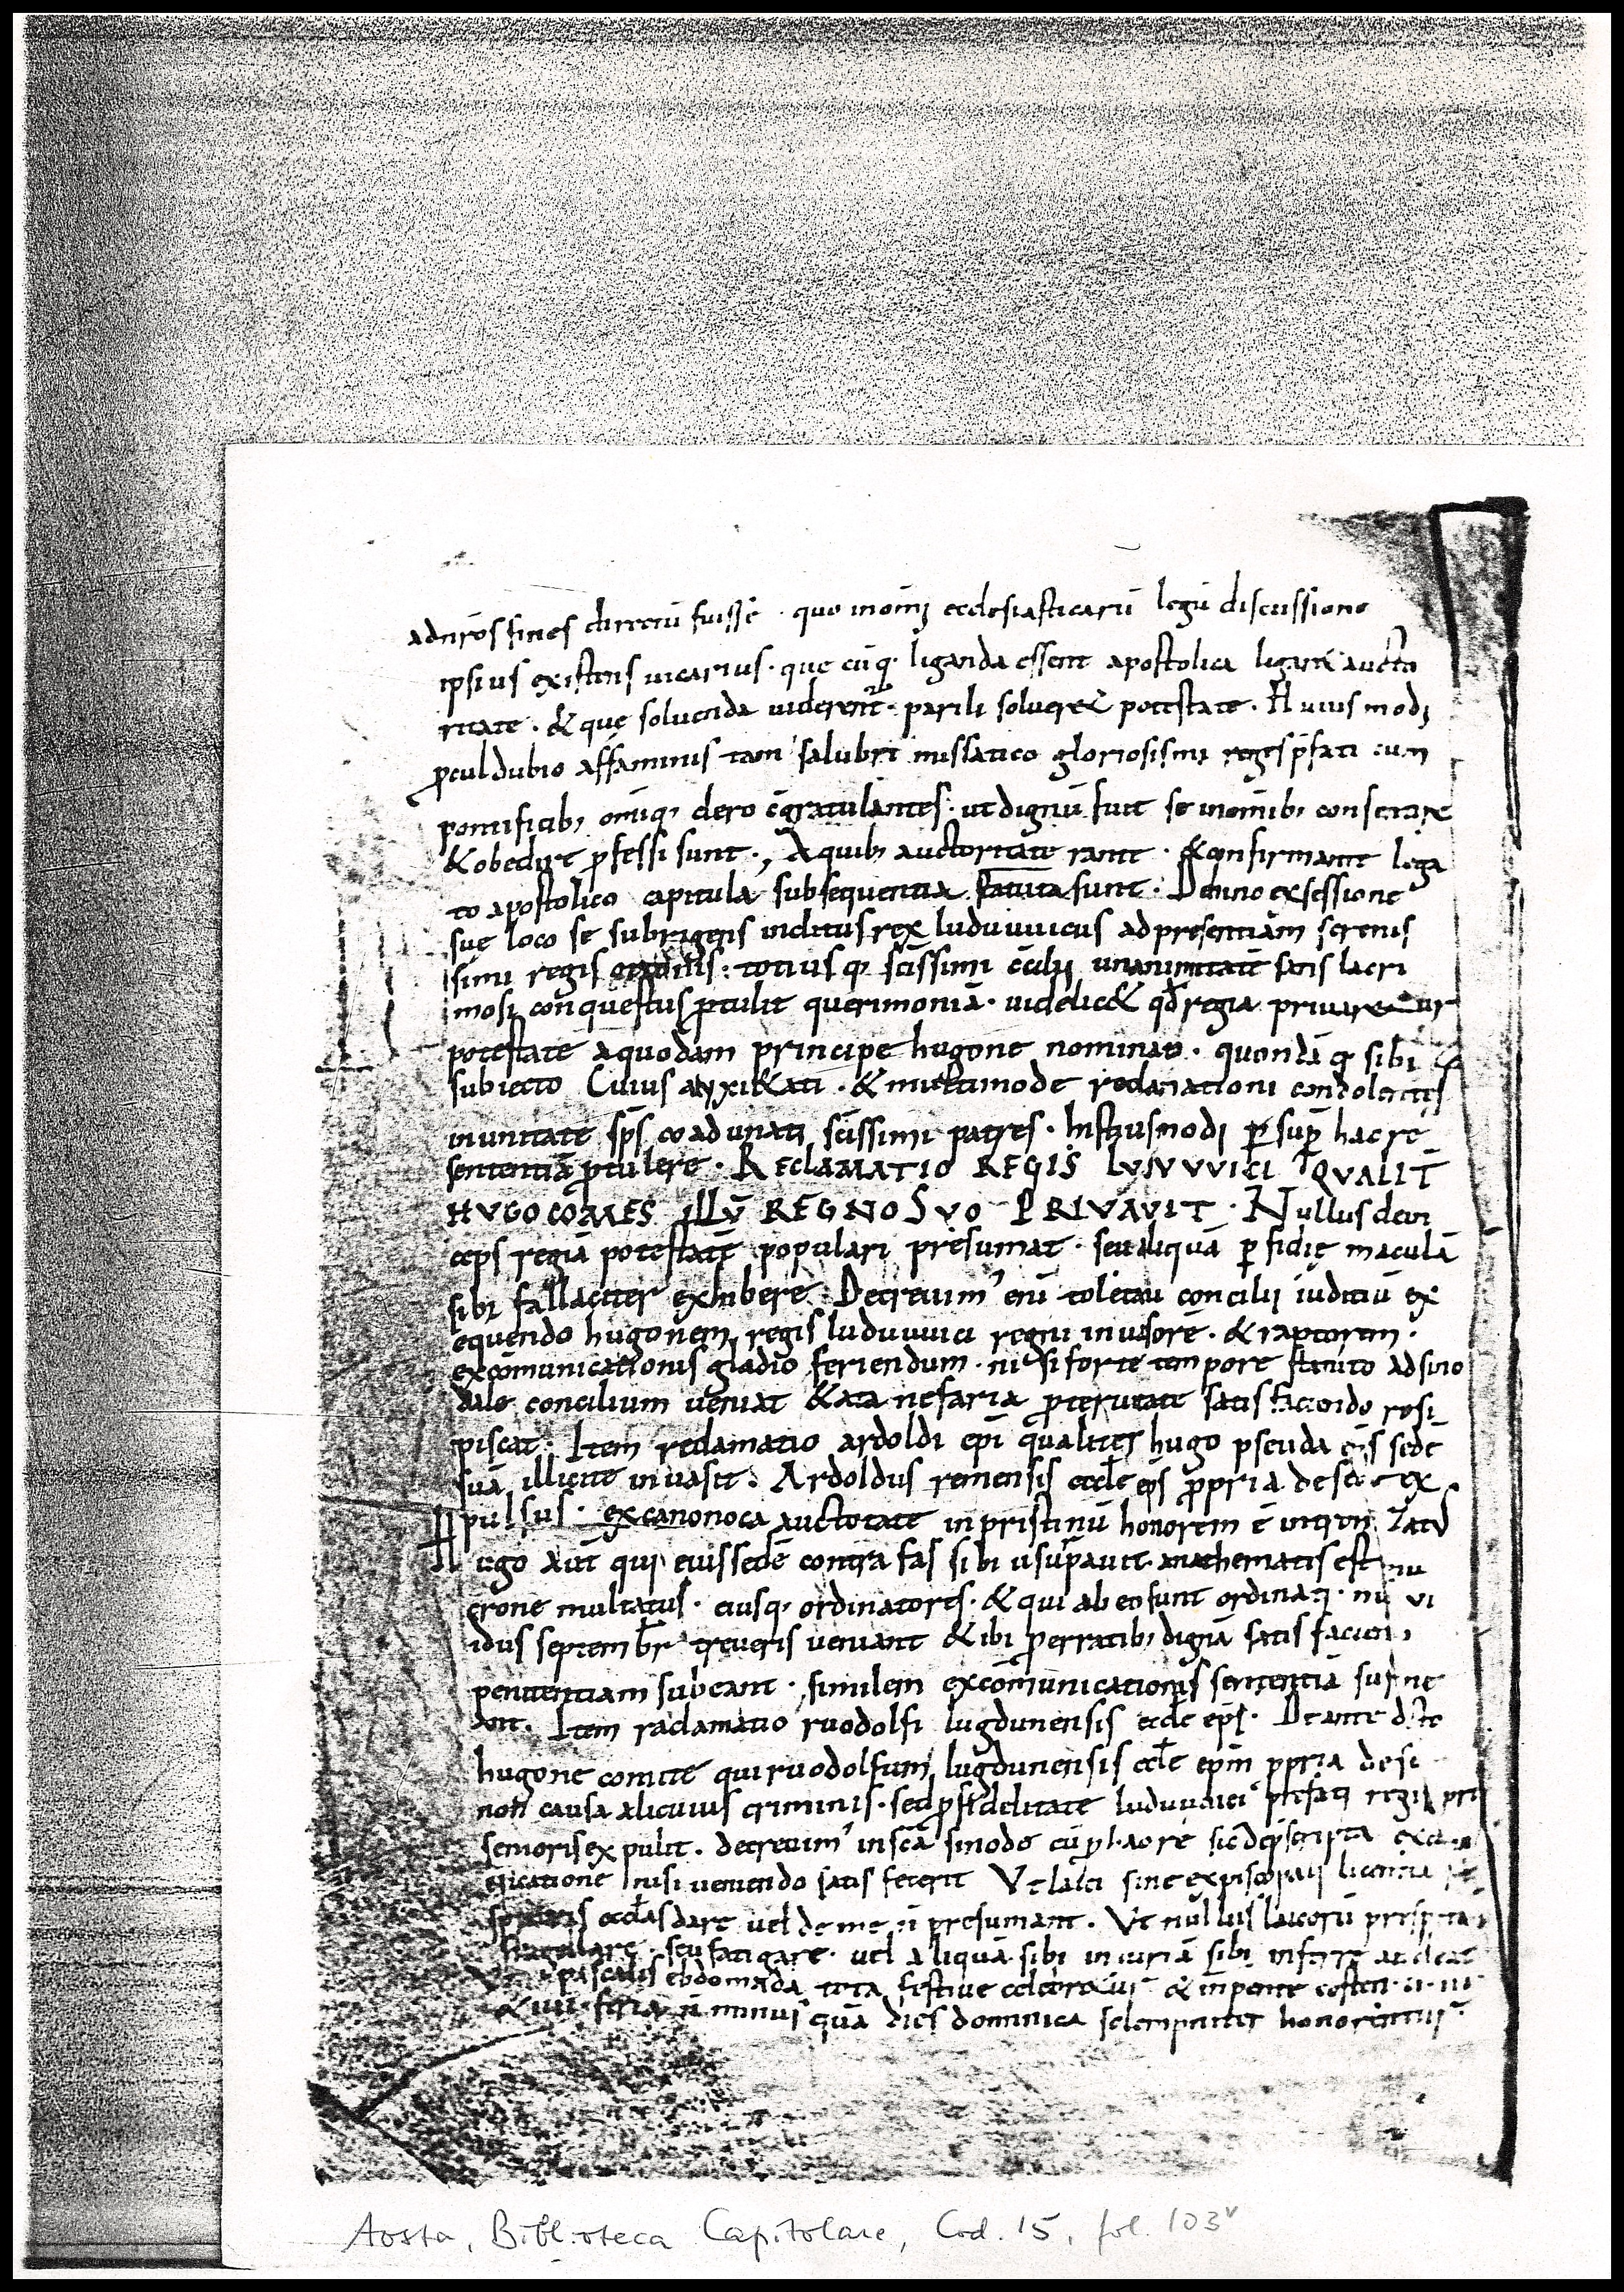 adnr̄os fines directū fuisse · quo in om̄i ecclesiasticarū legū discussione
ipsius existens uicarius · que cūq · liganda essent apostolica ligar& aucto
ritate · & quę soluenda uiderent · parili soluer& potestate · Huius modi
proculdubio affaminis tam salubri missatico gloriosissimi regis p̄fati cum
pontificib; om̄iq; clero c̄gratulantes · ut dignū fuit se in om̄ib; consentire
& obedire professi sunt · A quib; auctoritate · & confirmante lega
to apostolico capitula subsequentia statuta sunt · Denno ex sessione
suę loco se subrigens inclitus rex luduuuicus ad presentiam serenis
simi regis ottonis : totius q; sc̄issimi c̄cilii unanimitatē satis lacri
mosi conquestus protulit querimoniā · uidelic& qd̄ regia priuaretur
potestate a quodam principe hugone nominato · quondā q; sibi
subiecto Cuius anxi&ati · & multimode reclamationi condolentes
in unitate sp̄s coadunati sc̄issimi patres · Istiusmodi p sup hac re
sententiā protulere · RECLAMATIO REGIS LVDVVVICI QVALIT̄
HVGO COMES ILLV̄ REGNO SVO PRIVAVIT · Nullus dein
ceps regiā potestatē populari presumat · seu aliquā p fidię maculā
sibi fallaciter exhibere · Decreuim' enī toletani concilii iuditiū ex
equendo hugonem regis luduuuici regni inuasore · & raptorem ·
excōmunicationis gladio feriendum · nisi forte tempore statuto ad sino
dale concilium ueniat & ata nefaria proteruitate satisfaciendo resi
piscat · Item reclamatio ardoldi ep̄i qualiter hugo pseudo ep̄s sedē
suā illicite inuasit · Ardoldus remensis eccl̄e ep̄s propria de sede ex
pulsus · ex canonoca auctoritate in pristinū honorem ē
Hugo aut̄ qui eius sedē contra fas sibi usurpauit anathematis est mu
crone multatus · eiusq; ordinatores · & qui ab eo sunt ordinati · nisi vi
idus septembr̄ treueris ueniant & ibi perratib; dignā satisfaciendi
penitentiam subeant · similem excōmunicationis sententiā sustine
ant · Item raclamatio ruodolfi lugdunensis eccl̄e ep̄i · De ante dicto
hugone comite qui ruodolfum lugdunensis eccl̄e ep̄m ppria de se
non causa alicuius criminis · sed p fidelitate luduuuici prefati regis
senioris expulit · decreuim' in sc̄a sinodo
nicatione nisi ueniendo satis fecerit Vt laici sine episcopali licentia
eccl̄as dare uel deme n̄ presumant · Vt nullus laicorū
seu fatigare · uel aliquā sibi iniuriā sibi inferre audeat
pascalis ebdomada tota festiue celebr&ur & in pentecosten · ii · iii
& iiii · feria n̄ minus quā dies dominica solempniter honorentur
Aosta, Biblioteca Capitolare, Cod. 15, fol. 103v